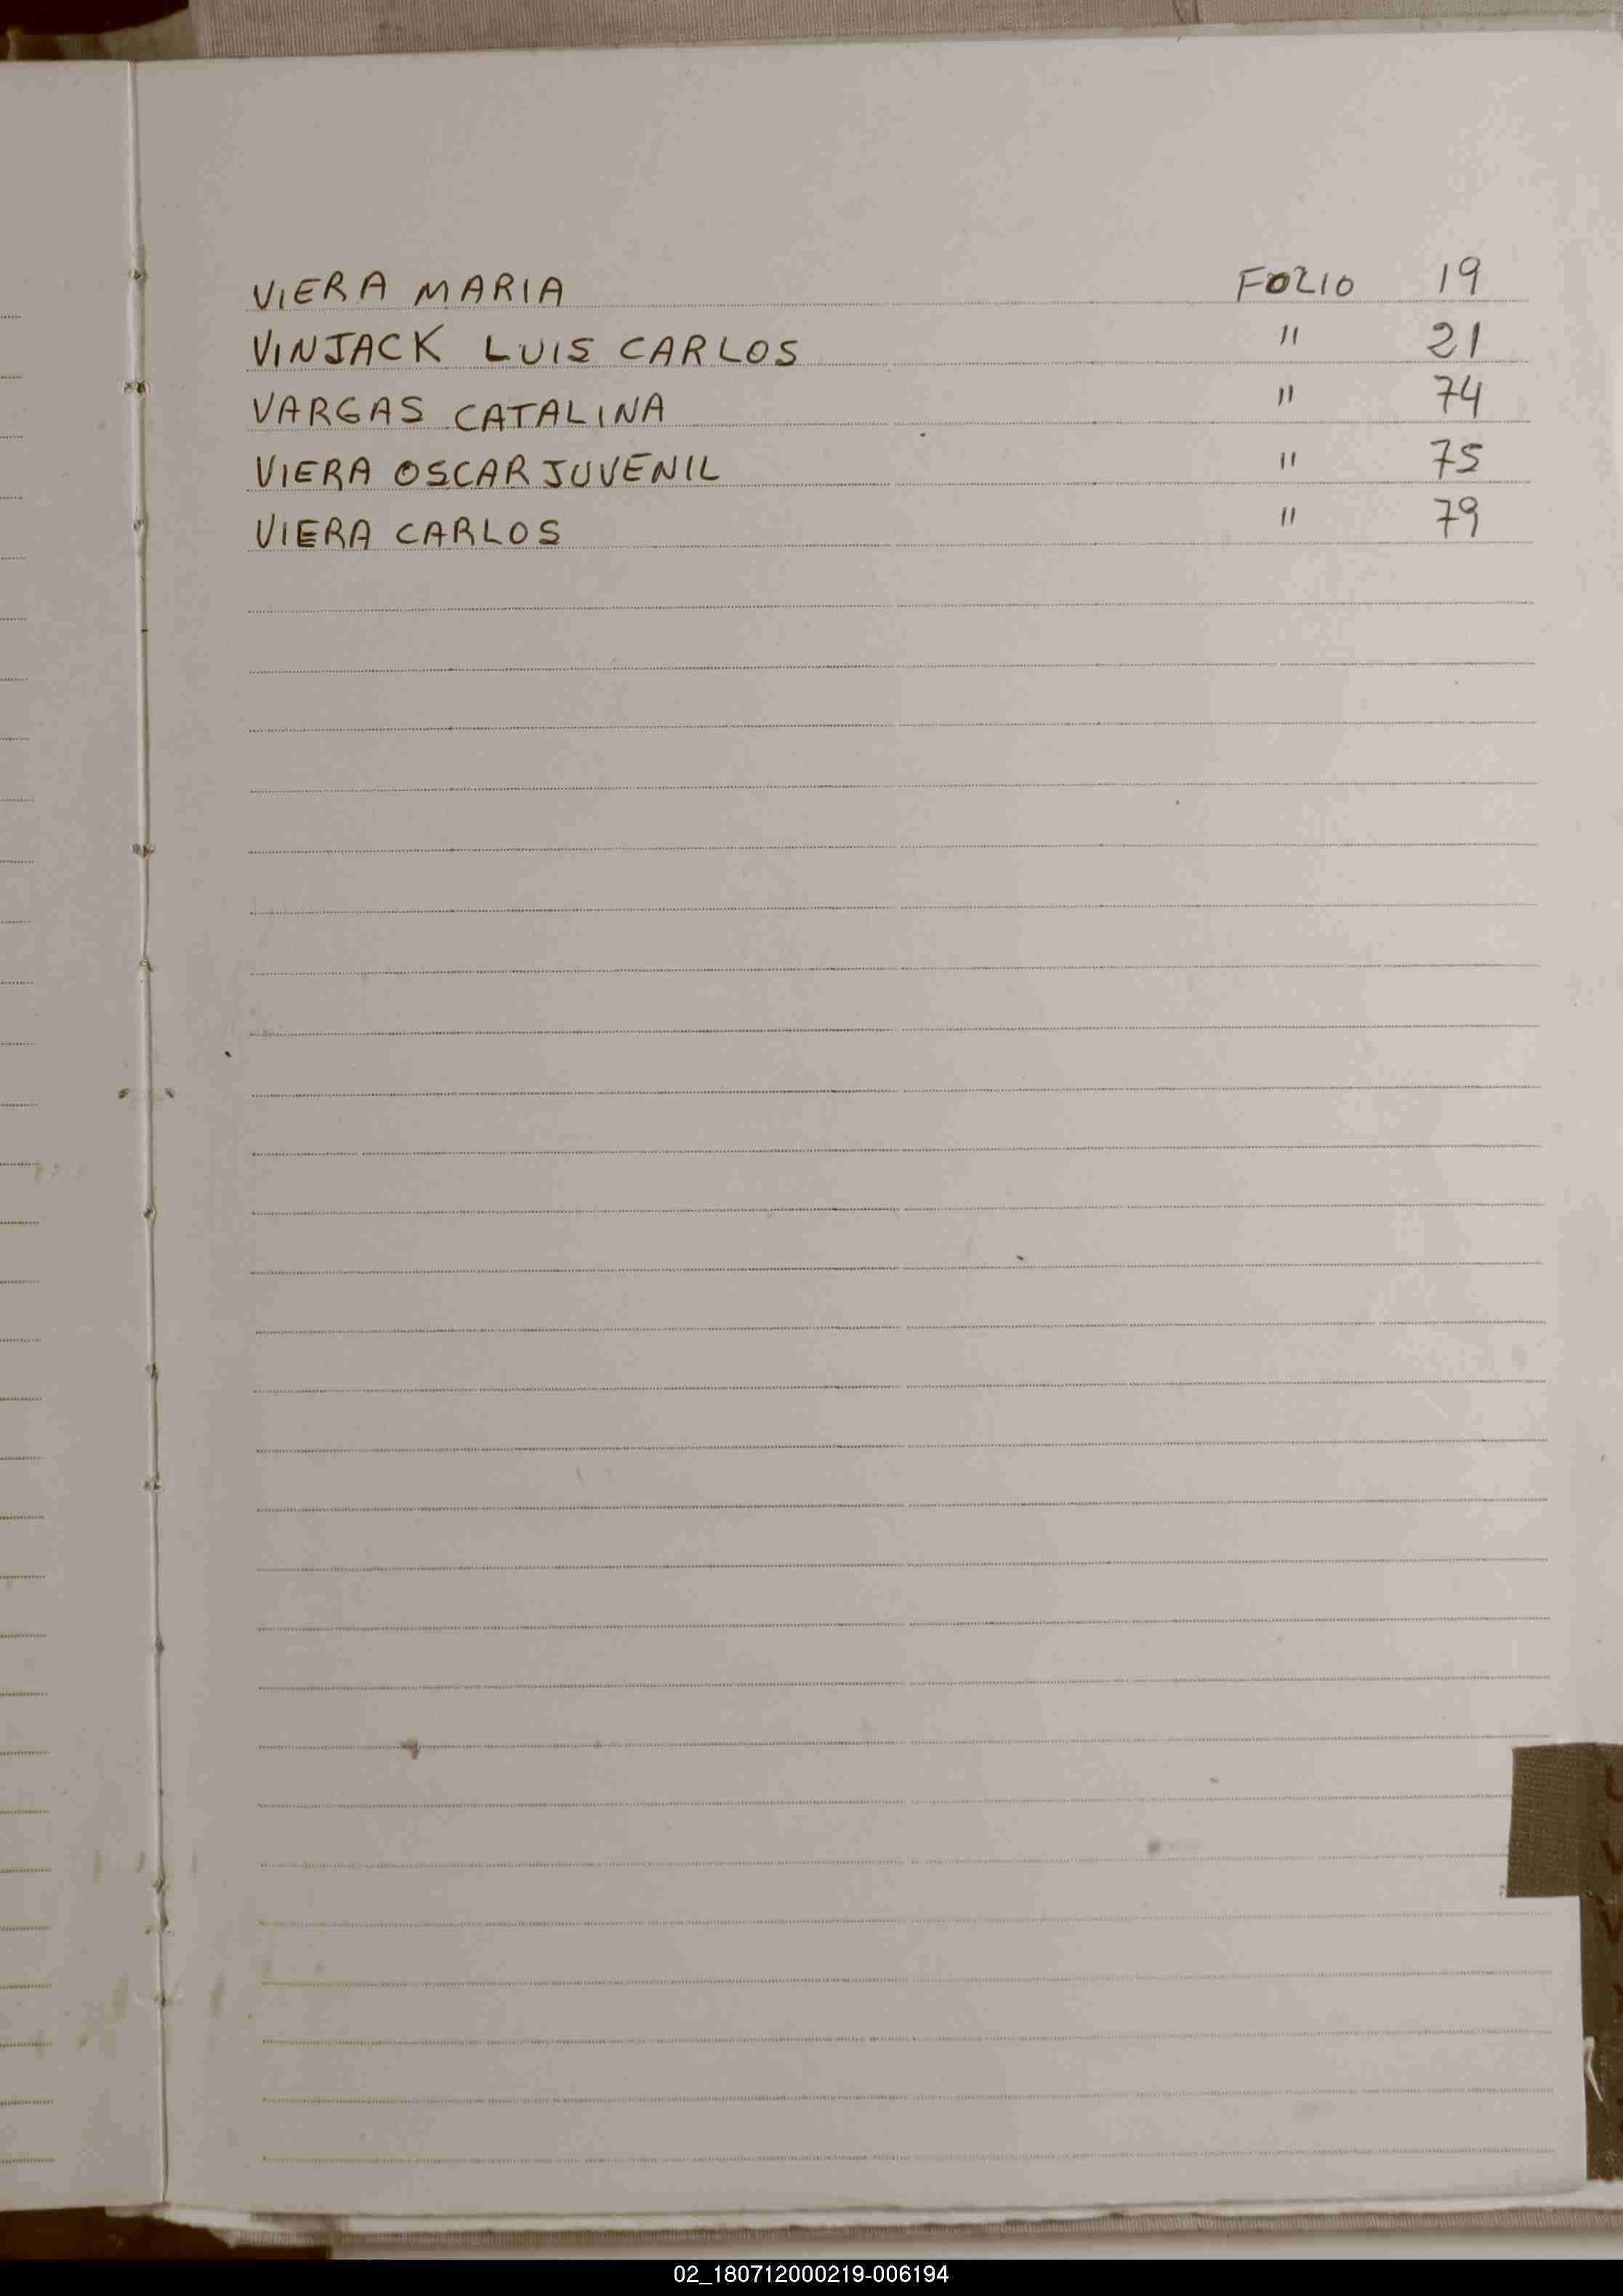 VIERA MARIA FOLIO 19
VINJACK LUIS CARLOS " 21
VARGAS CATALINA " 74
VIERA OSCAR JUVENIL " 75
VIERA CARLOS " 79
02_180712000219-006194